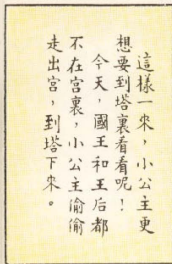 這樣一來，小公主更
想要到塔裏看看呢！
今天，國王和王后都
不在宮裏，小公主偷偷
走出宮，到塔下來。